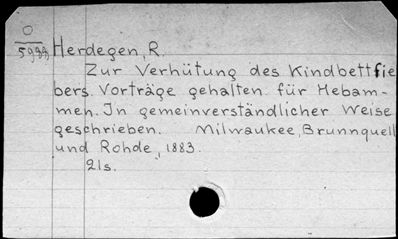 O
5999 Herdegen, R.
Zur Verhütung des Kindbettfie
bers. Vorträge gehalten für Hebam-
men. In gemeinverständlicher Weise
geschrieben. Milwaukee, Brunnquell
und Rohde, 1883.
21s.